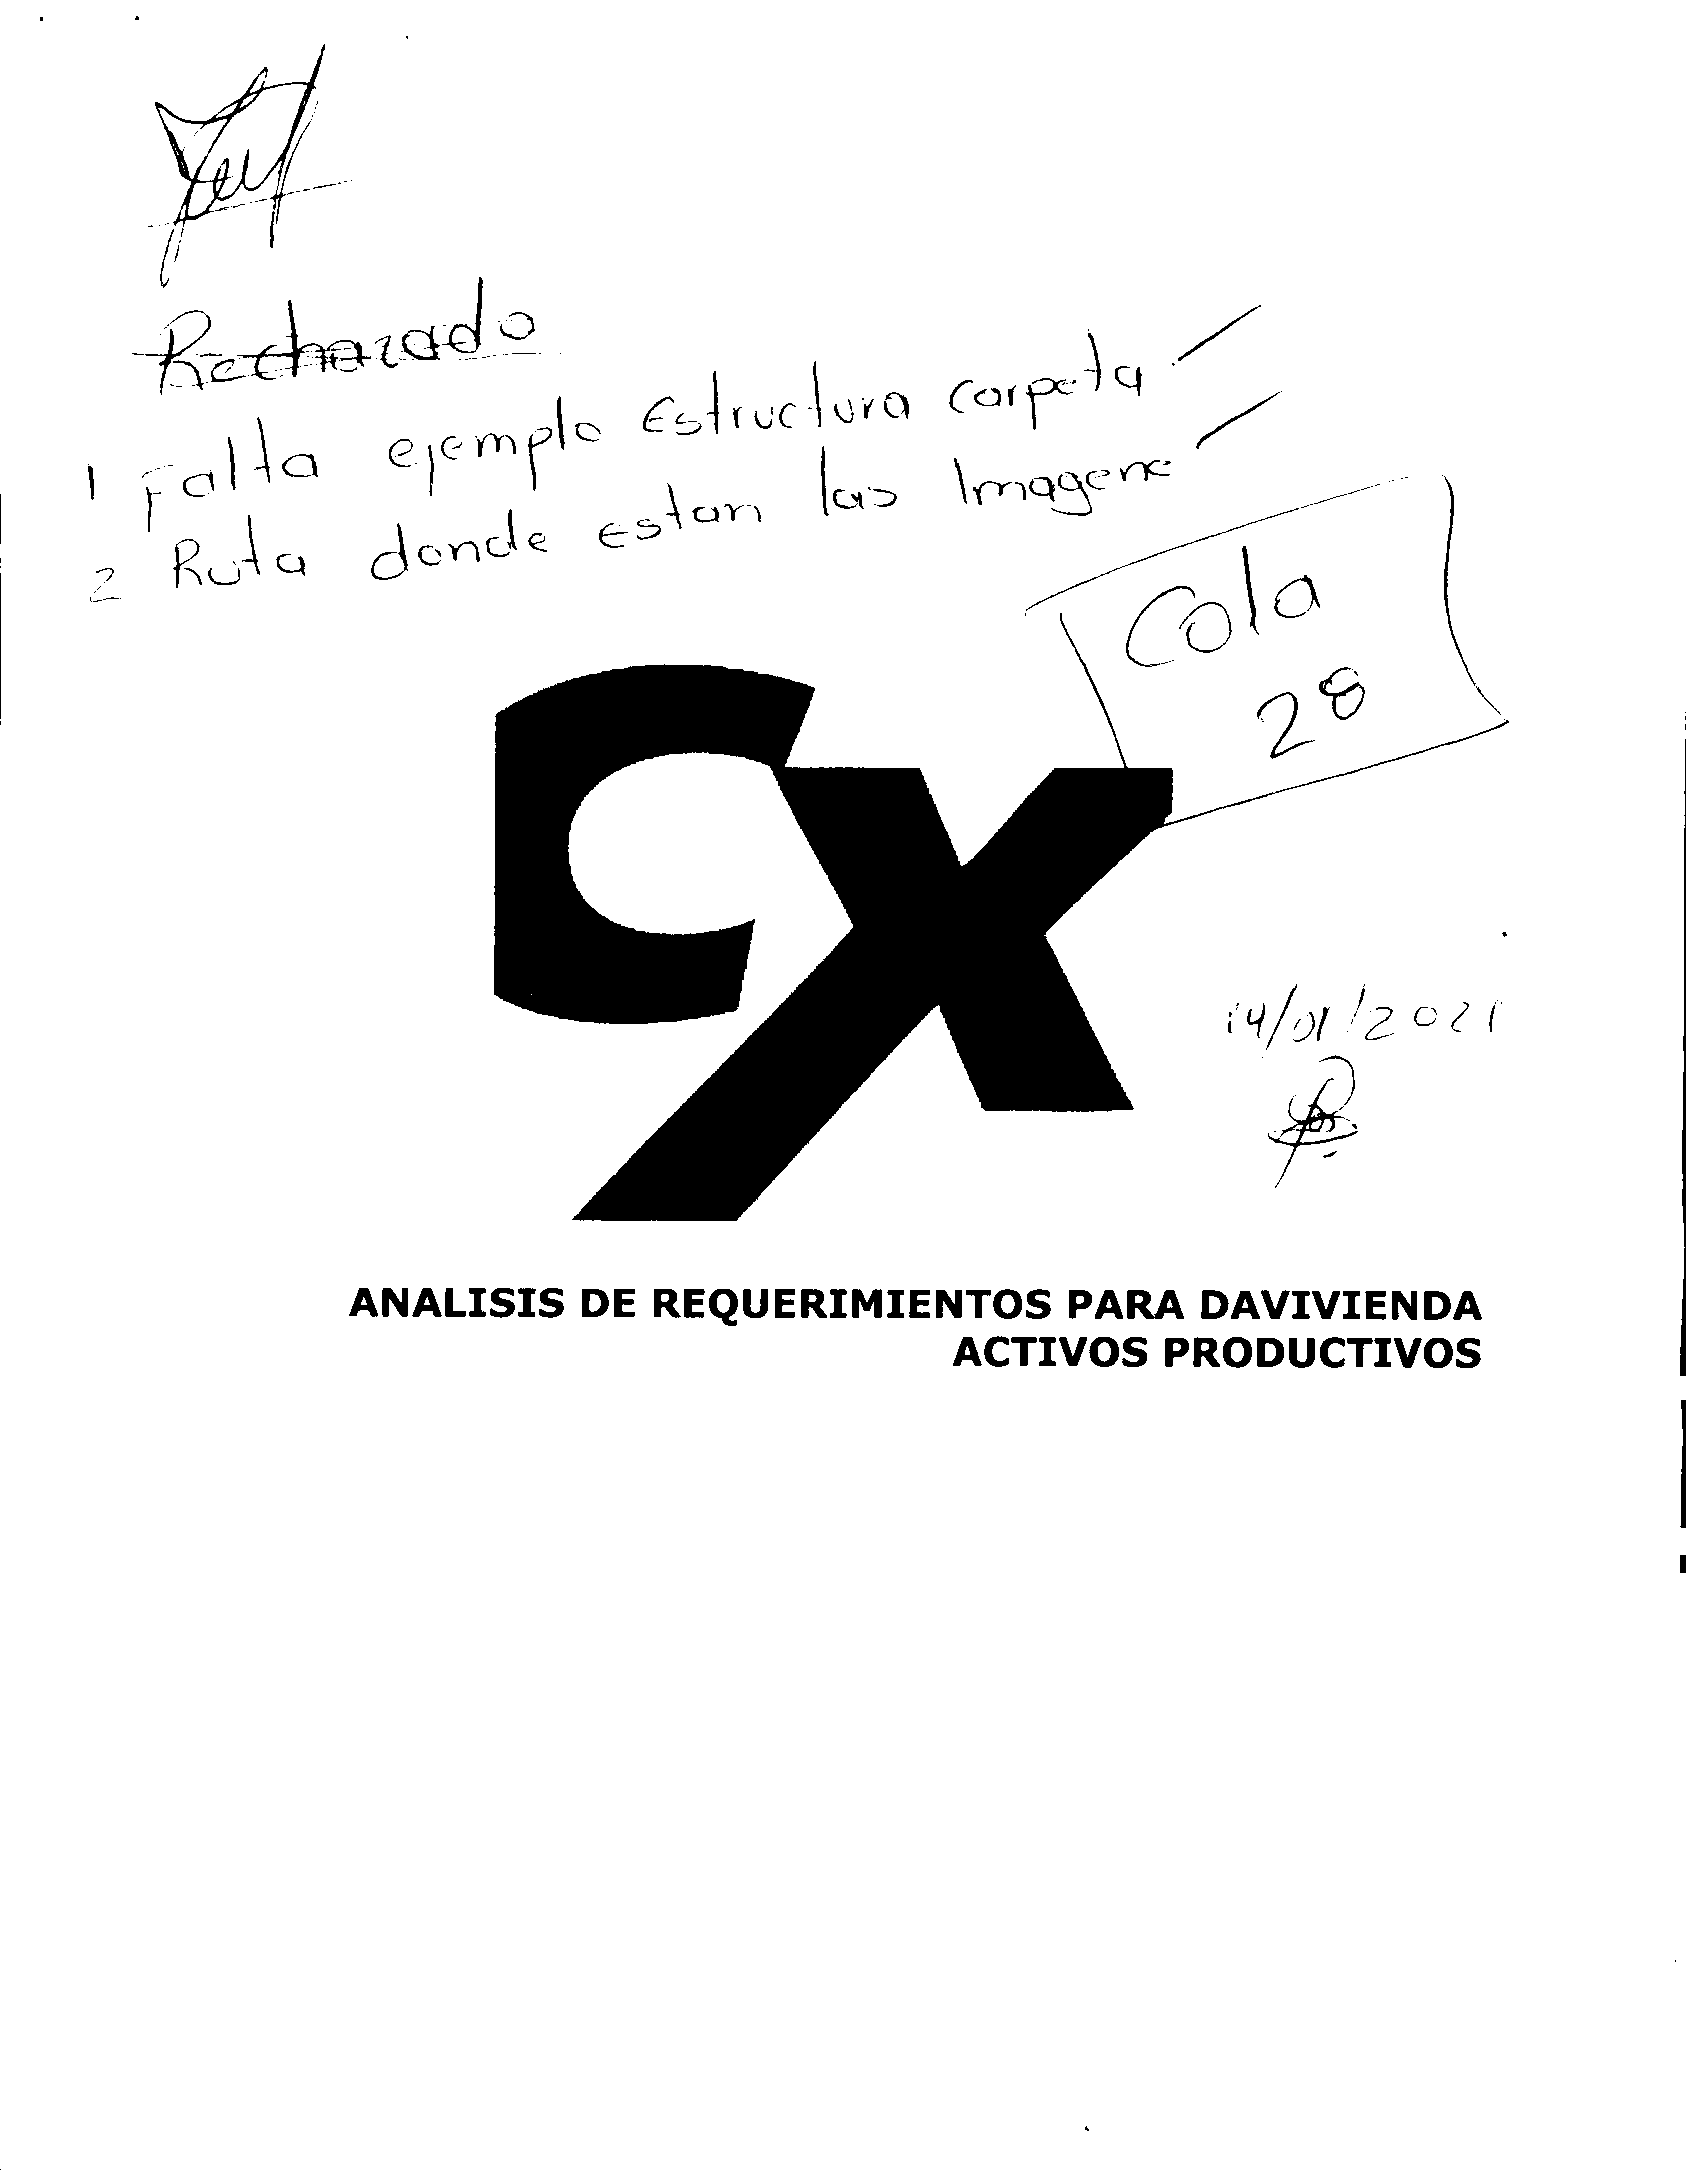 Rechazado
1 Falta ejemplo Estructura carpeta
2 Ruta donde estan las Imagene
Cola
28
CX
14/01/2021
ANALISIS DE REQUERIMIENTOS PARA DAVIVIENDA
ACTIVOS PRODUCTIVOS